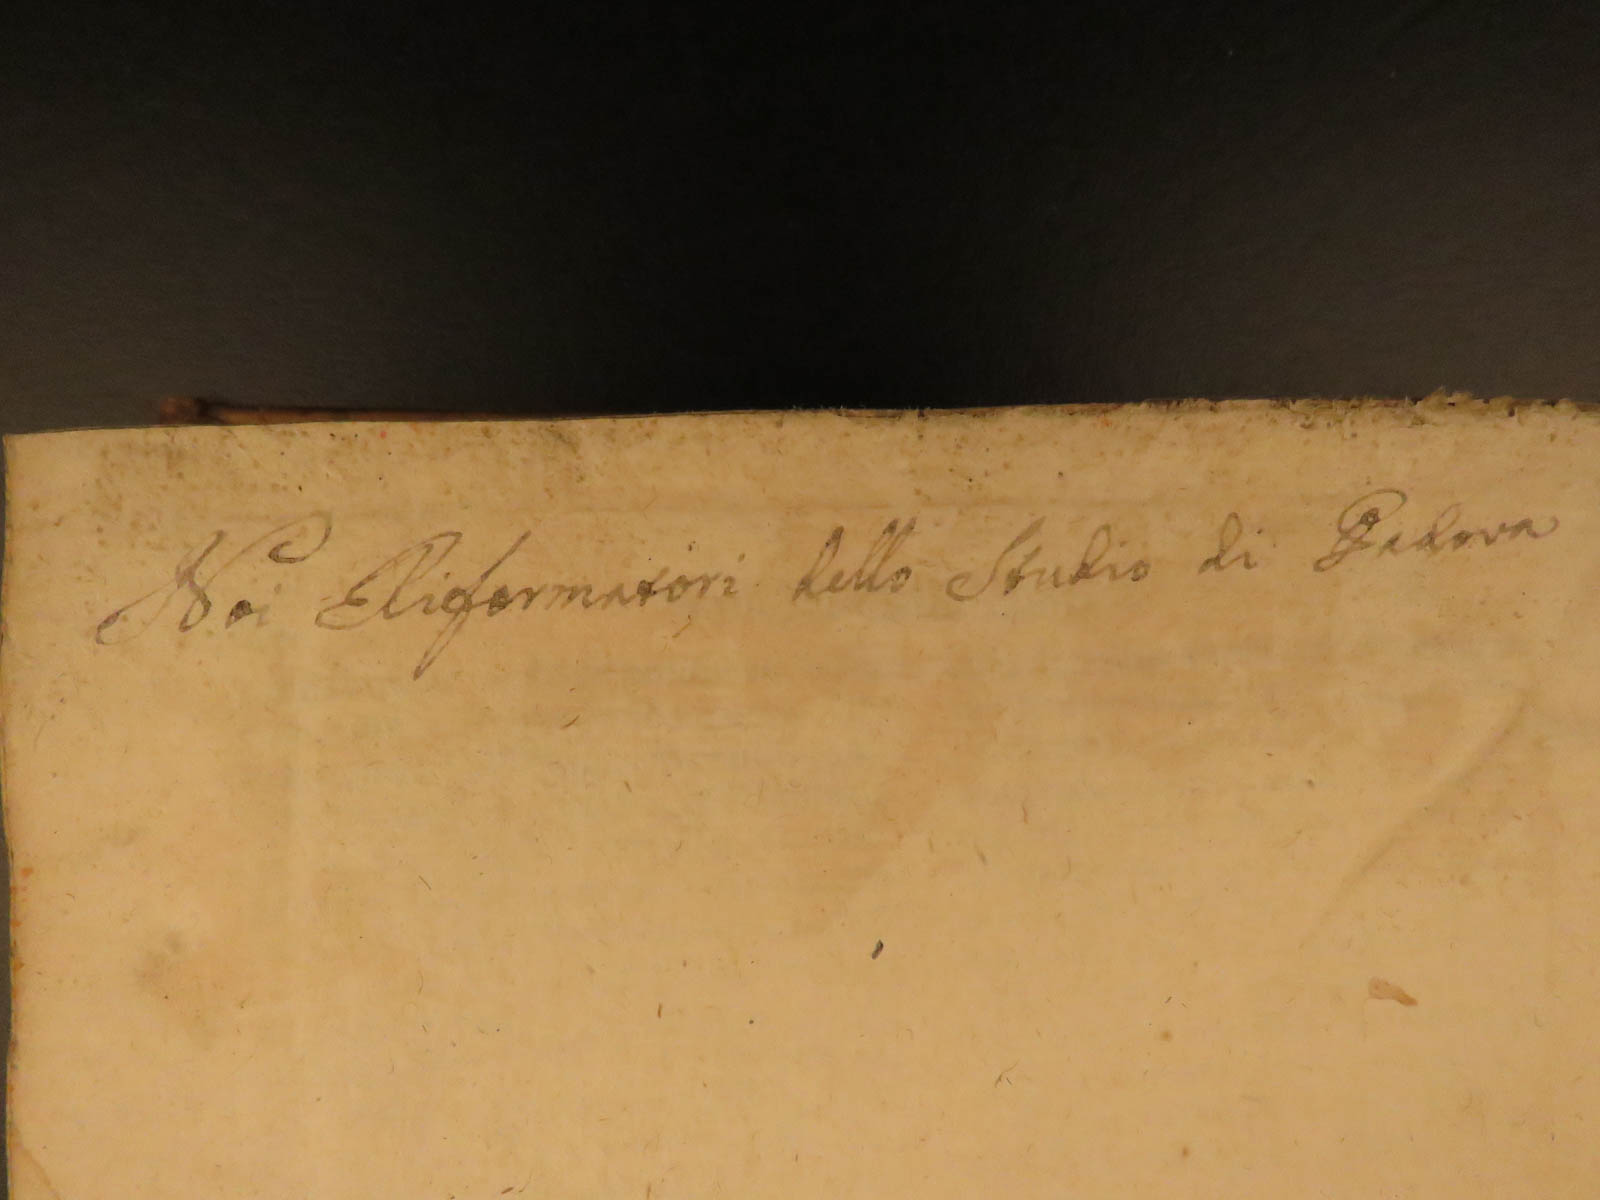 Noi Riformatori dello Studio di Padova